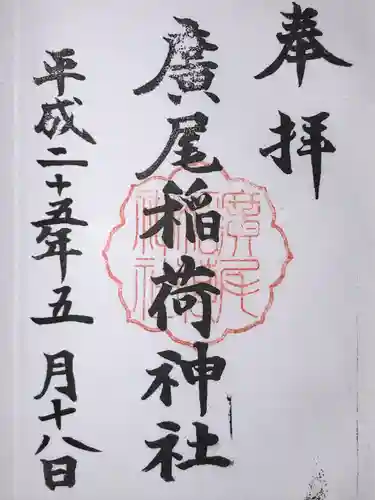 奉拝
廣尾稲荷神社
平成二十五年五月十八日
廣尾稲荷神社